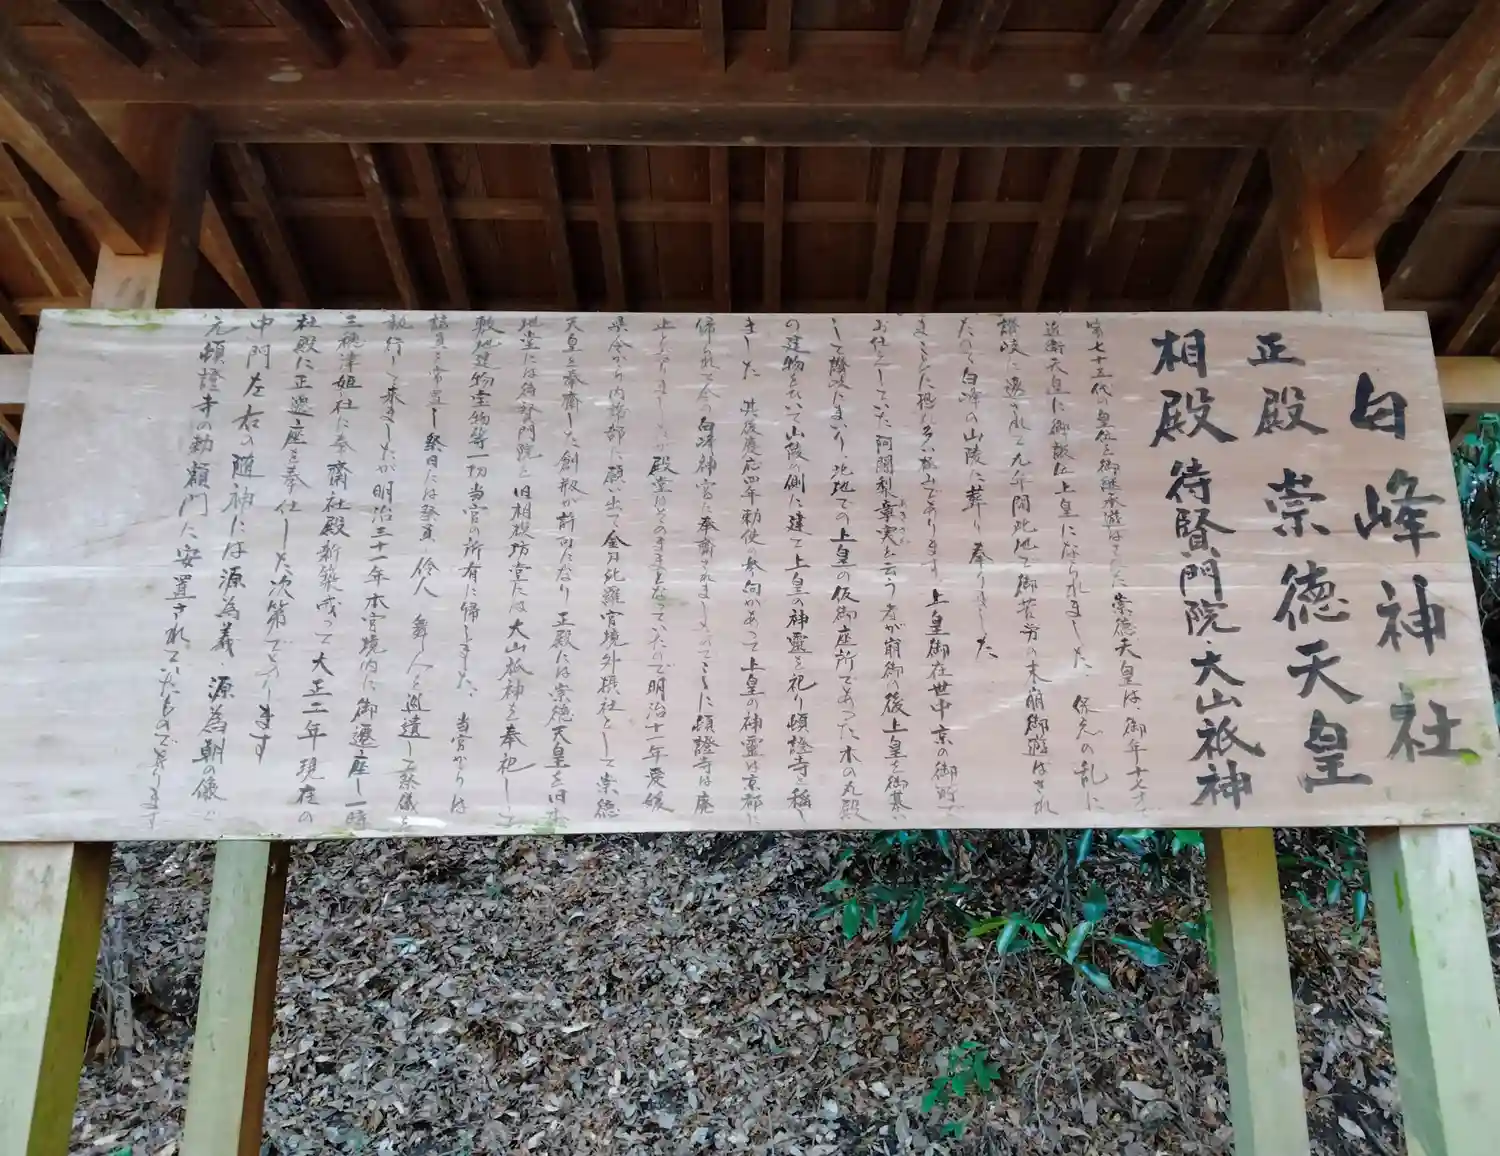 白峰神社
正殿 崇徳天皇
相殿 待賢門院・大山祇神
第七十五代の皇位を御継承遊ばされた崇徳天皇は、御年十七才で
近衛天皇に御譲位上皇になられました 保元の乱に
讃岐に遷されて九年間此地で御苦労の末崩御遊ばされ
たので白峰の山陵に葬り奉りました
まことに 山であります 上皇御在世中京の御所で
お仕えしていた阿闍梨章実と云う者が崩御の後上皇を御慕い
して讃岐にまいり、此地での上皇の仮御座所であった木の丸殿
の建物をひいて山陵の側に建て上皇の神靈を祀り頓證寺と稱し
ました 其後慶応四年勅使の参向があって上皇の神靈は京都に
帰られて今の白峰神宮に奉齋されましたのでここに頓證寺は廃
止となりましたが殿堂はそのままとなっていたので明治十一年愛媛
県令から内務部に願い出て金刀比羅宮境外摂社として崇徳
天皇を奉齋した創祀が前向になり 正殿には崇徳天皇を旧本
地堂には待賢門院を旧相模坊堂には大山祇神を奉祀して
敷地建物宝物等一切当宮の所有に帰しました 当宮からは
詰員を常置し祭日には祭員 伶人 舞人を派遣して祭儀を
執行して来ましたが明治三十一年本宮境内に御遷座し一時
三穂津姫社に奉齋社殿新築成って大正二年現在の
社殿に正遷座を奉仕した次第であります
中門左右の随神には源為義・源為朝の像が
元頓證寺の勅額門に安置されていたものであります